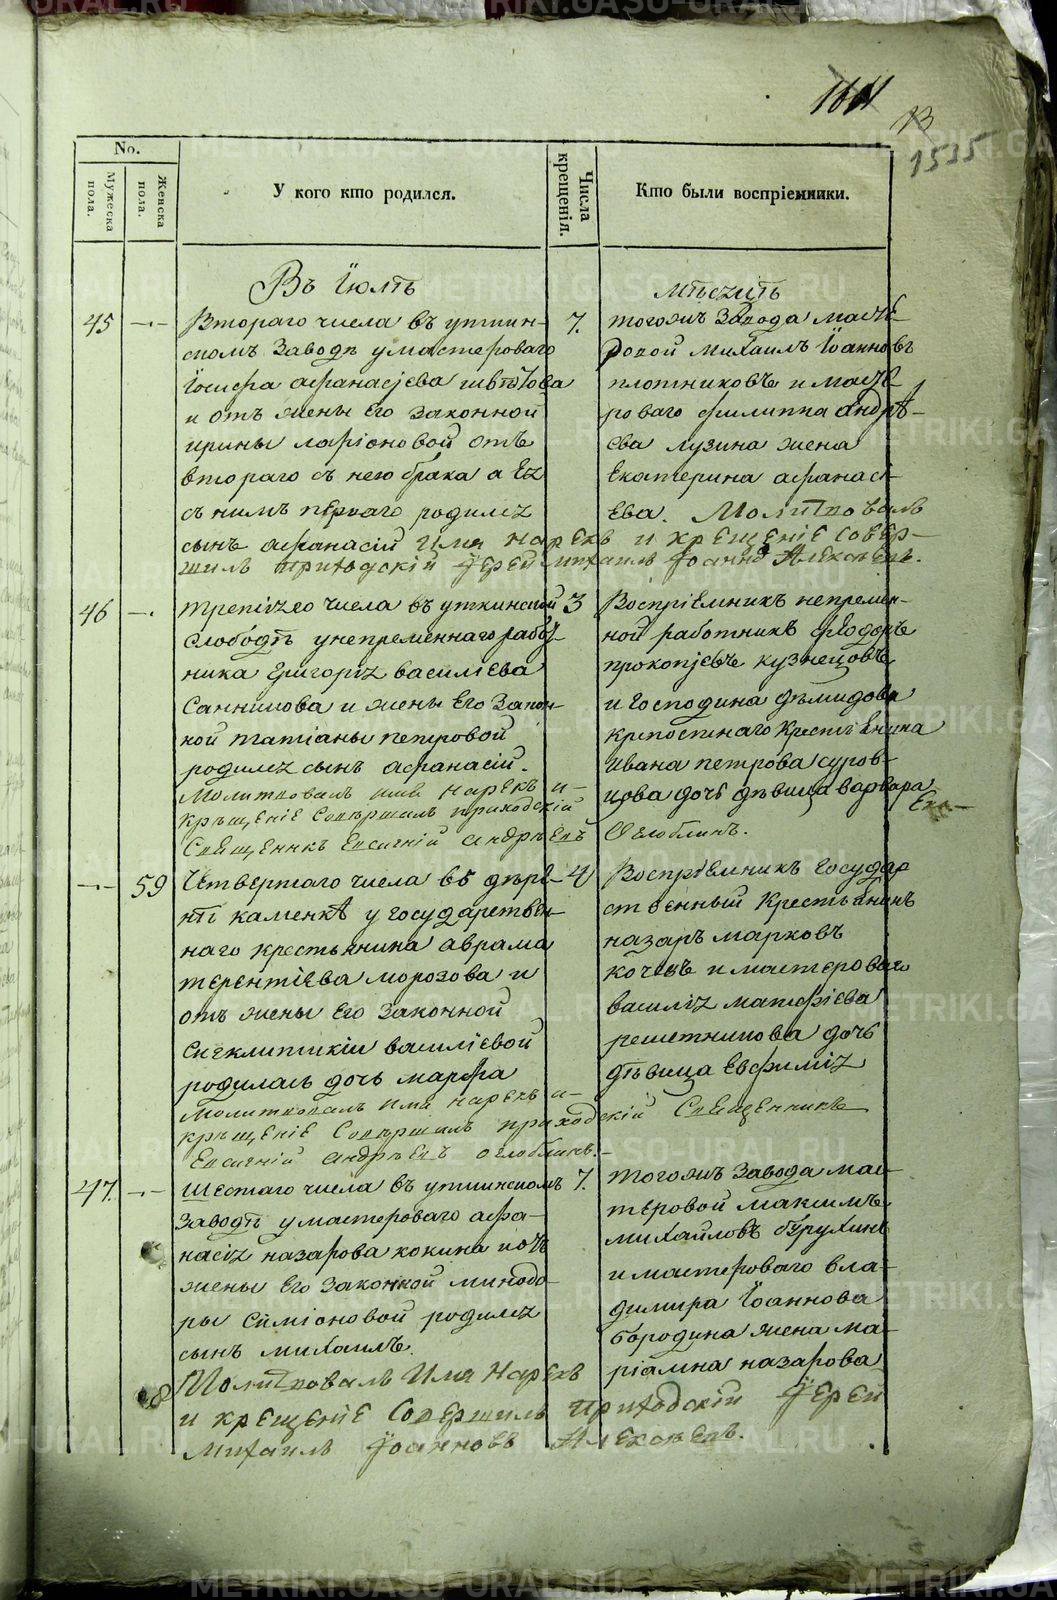 1535
No.
Мужеска пола.
Женска пола.
У кого кто родился.
Числа крещенія.
Кто были воспріемники.
Въ Іюлѣ
мѣсяцѣ
45
Втораго числа въ уткин-
скомъ Заводѣ у мастероваго
Іосифа афанасьева
и отъ жены Его Законной
ирины ларіоновой отъ
втораго съ него брака а Ея
съ нимъ перваго родился
сынъ афанасій Имя Нарекъ и крещеніе совер-
шилъ приходскій Іерей Михаилъ Іоанновъ Алексѣевъ.
7.
тогожъ Завода масте
ровой михаилъ Іоанновъ
плотниковъ и масте
роваго филиппа андрѣ-
ева лузина жена
Екатерина афанась
ева. Молитвовалъ
46
третіяго числа въ уткинской
Слободѣ унепременнаго рабо
ника григорія василіева
Санникова и жены Его Закон-
ной татіаны петровой
родился сынъ афанасій.
Молитвовалъ имя нарекъ и
крѣщеніе Совершилъ приходскій
Священникъ Евсигній андрѣевъ
3
Воспріемникъ непремен-
ной работникъ феодоръ
прокопьевъ кузнецовъ
и Господина дѣмидова
крепостнаго крестьянина
ивана петрова суров-
цова дочь дѣвица варвара
Оглоблинъ.
59
Четвертаго числа въ дере-
внѣ каменкѣ у государствен-
наго крестьянина аврама
терентіева морозова и
отъ жены Его Законной
Сигклитикіи василіевой
родилась дочь марфа
Молитвовалъ имя нарекъ и
крѣщеніе Совершилъ приходскій Священникъ
Евсигній андрѣевъ оглоблинъ.
4
Воспріемникъ государ
ственный Крестьянинъ
назаръ марковъ
кочевъ и мастероваго
василія матфіева
решетникова дочь
дѣвица Евфимія
47.
Шестаго числа въ уткинскомъ
Заводѣ у мастероваго афа-
насія назарова конина и отъ
жены Его Законной минодо-
ры Симіоновой родился
сынъ михаилъ.
Молитвовалъ Имя Нарекъ
и крещеніе Совершилъ приходскій Іерей
Михаилъ Іоанновъ Алексѣевъ.
7.
тогожъ Завода мас-
теровой максимъ
михайловъ бурухинъ
и мастероваго вла-
димира Іоаннова
бородина жена ма-
ріамна назарова
METRIKI.GASO-URAL.RU